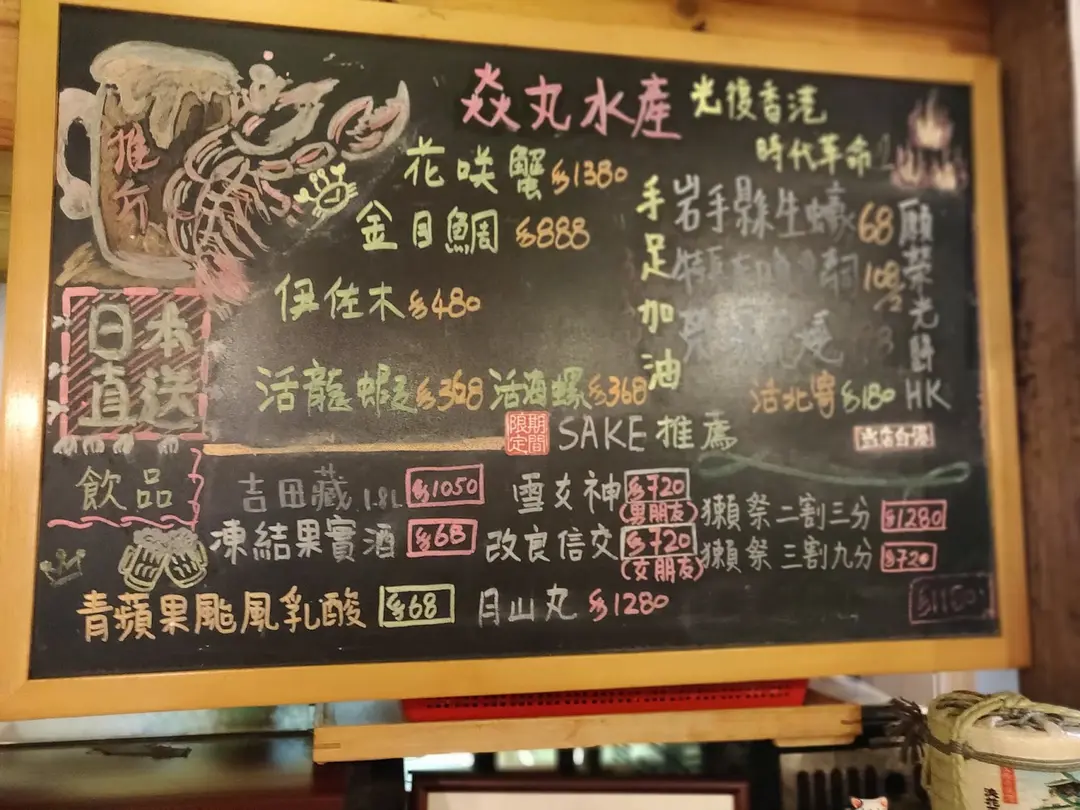 推介
焱丸水產
光復香港
時代革命
花咲蟹 $1380
金目鯛 $888
伊佐木 $480
活龍蝦 $368 活海螺 $368
手足加油
岩手縣生蠔 68
108
活北寄 $180
願榮光歸HK
日本
直送
限定期間
SAKE 推薦
飲品
吉田藏 1.8L $1050
雪女神 $720
(男朋友)
獺祭二割三分 $1280
凍結果實酒 $68
改良信交 $720
(女朋友)
獺祭三割九分 $720
青蘋果颱風乳酸 $68
月山丸 $1280